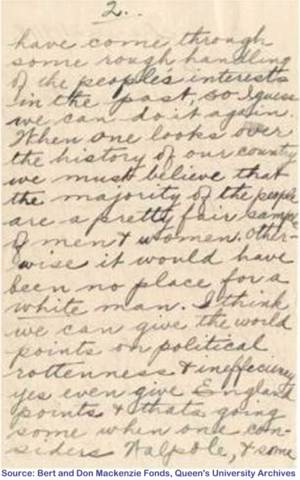 2.
have come through
some rough handling
of the peoples interests
in the past, so I guess
we can do it again.
When one looks over
the history of our country
we must believe that
the majority of the people
are a pretty fair sample
of men & women. Other-
wise it would have
been no place for a
white man. I think
we can give the world
points on political
rottenness & inefficiency
yes even give England
points & thats going
some when one con-
siders Walpole, & some
Source: Bert and Don Mackenzie Fonds, Queen's University Archives